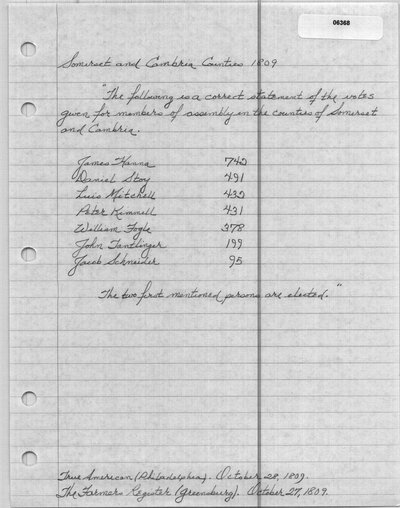 06368
Somerset and Cambria Counties 1809
"The following is a correct statement of the votes
given for members of assembly in the counties of Somerset
and Cambria.
James Hanna 742
Daniel Stoy 491
Luis Mitchell 432
Peter Kimmell 431
William Fogle 378
John Tantlinger 199
Jacob Schneider 95
The two first mentioned persons are elected."
True American (Philadelphia). October 28, 1809.
The Farmers Register (Greensburg). October 27, 1809.